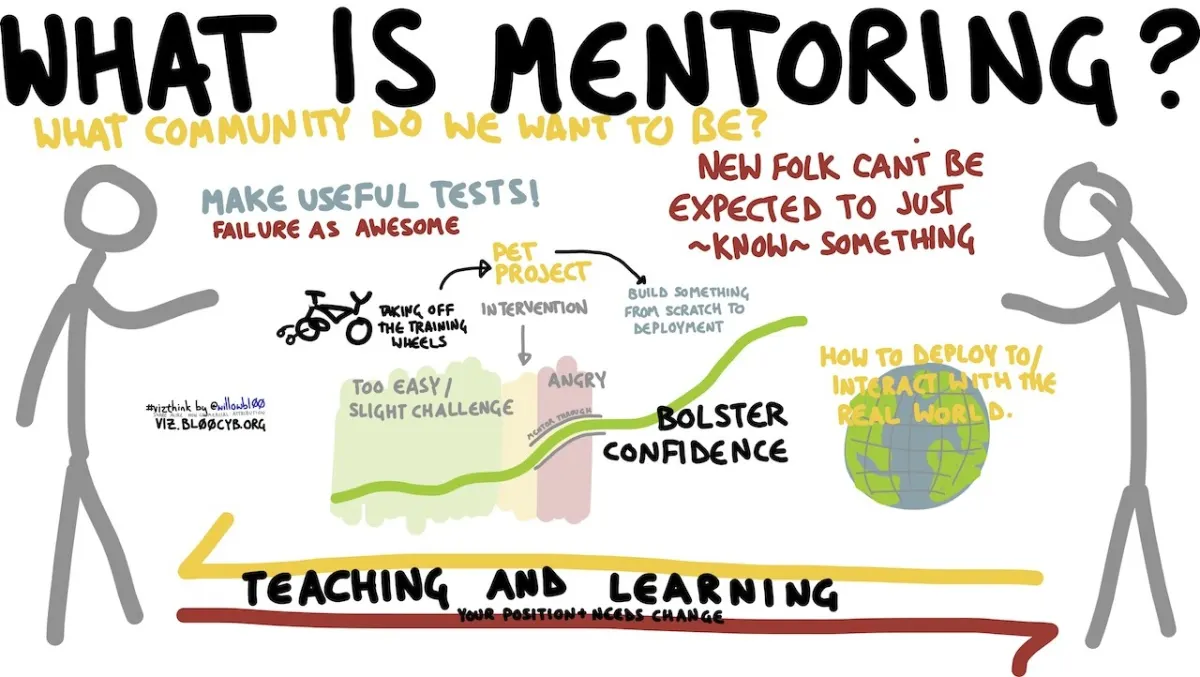 WHAT IS MENTORING?
WHAT COMMUNITY DO WE WANT TO BE?
MAKE USEFUL TESTS!
FAILURE AS AWESOME
NEW FOLK CAN'T BE
EXPECTED TO JUST
~KNOW~ SOMETHING
PET
PROJECT
TAKING OFF
THE TRAINING
WHEELS
INTERVENTION
BUILD SOMETHING
FROM SCRATCH TO
DEPLOYMENT
TOO EASY/
SLIGHT CHALLENGE
ANGRY
MENTOR THROUGH
BOLSTER
CONFIDENCE
HOW TO DEPLOY TO/
INTERACT WITH THE
REAL WORLD.
#vizthink by @willowbl00
SHARE ALIKE NON COMMERCIAL ATTRIBUTION
VIZ.BL00CYB.ORG
TEACHING AND LEARNING
YOUR POSITION + NEEDS CHANGE